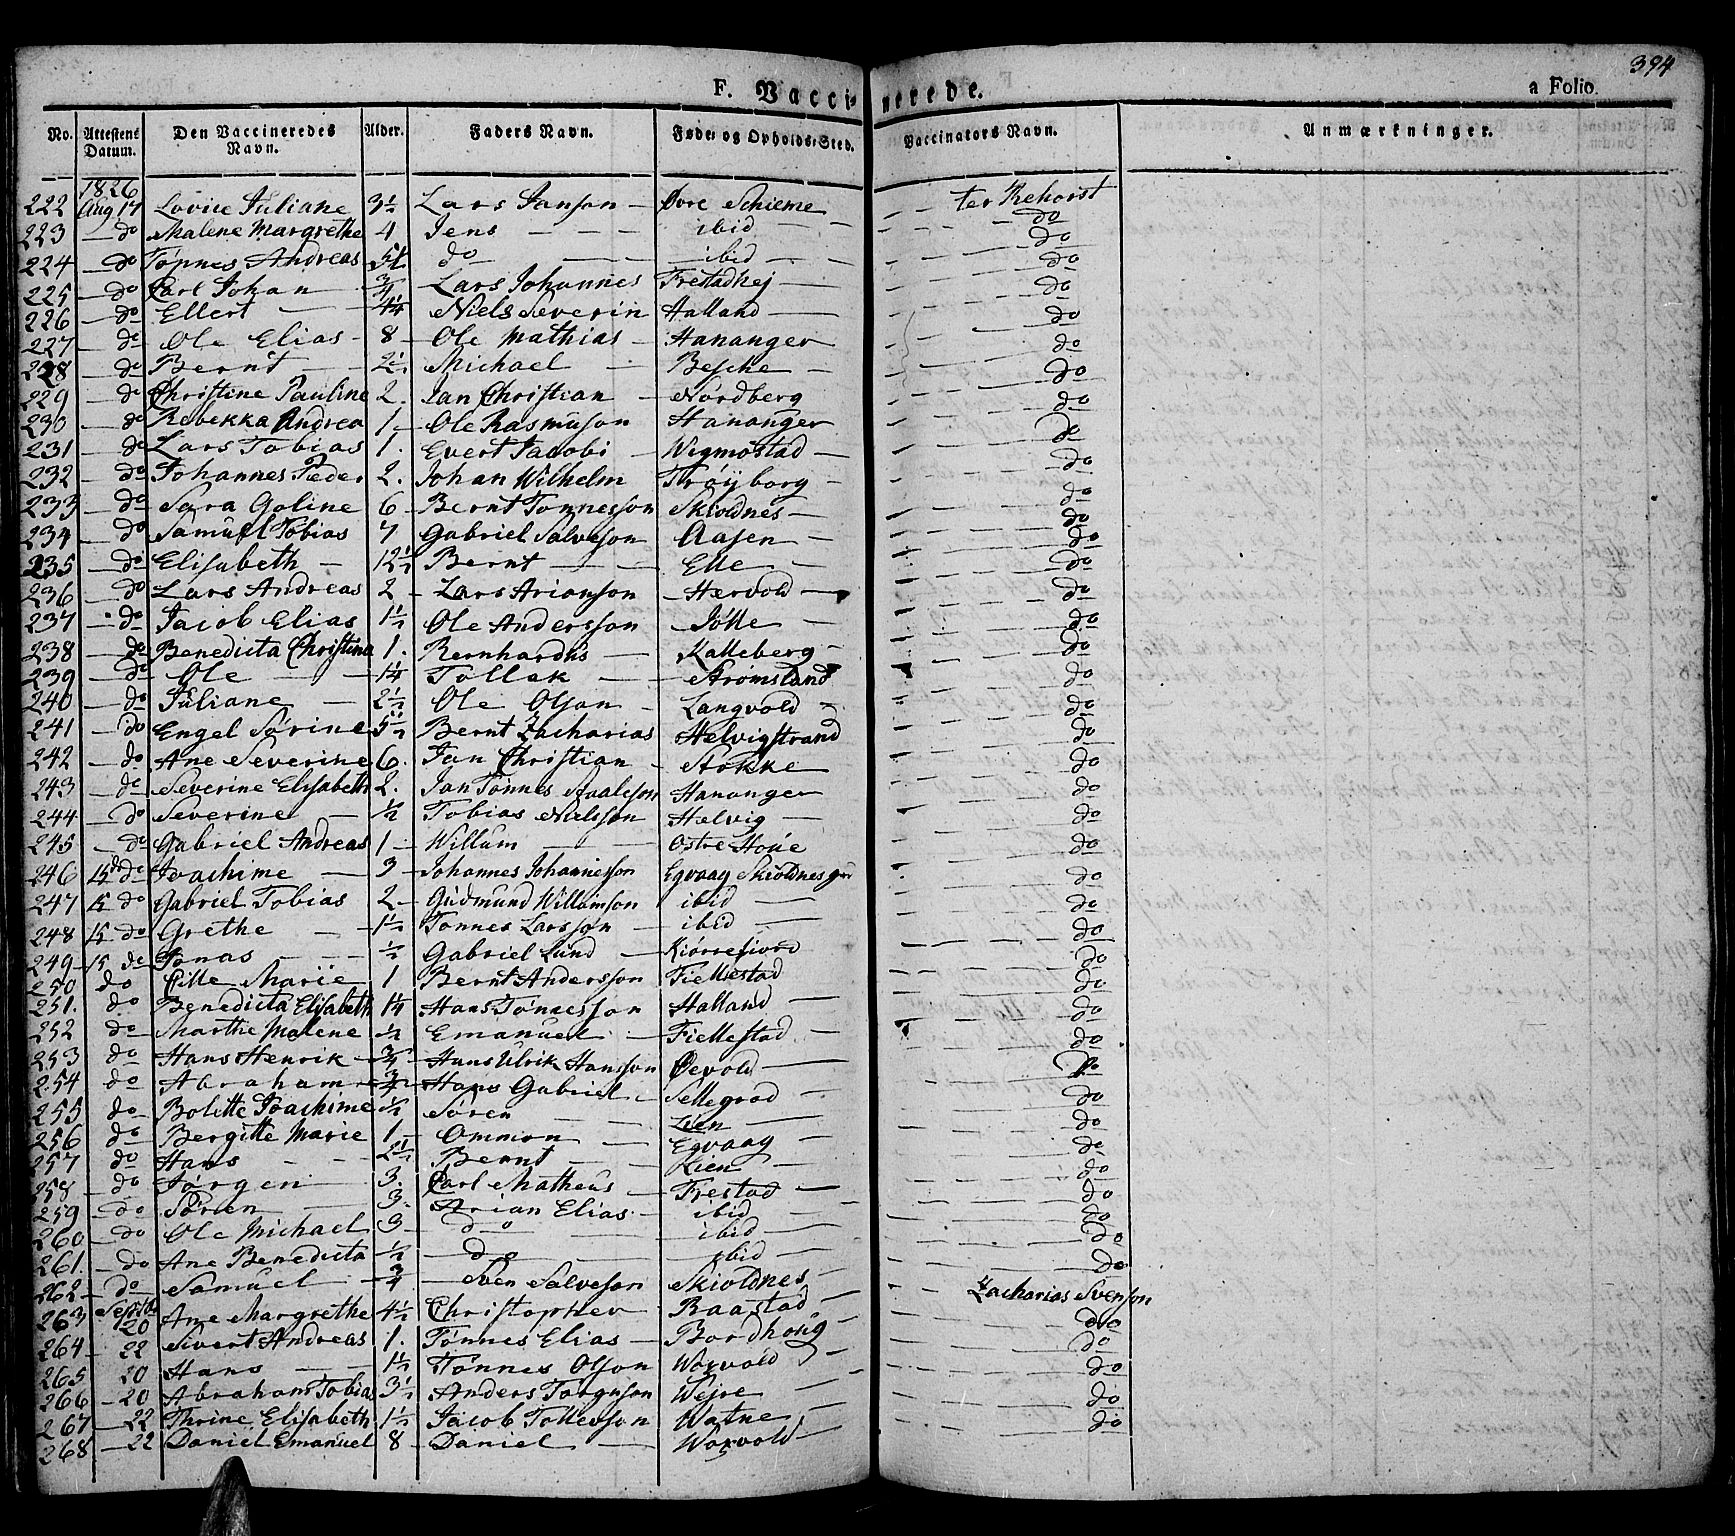 394
F. Vaccinerede. a Folio.
No. Attestens Datum. Den Vaccineredes Navn. Alder. Faders Navn. Føde- og Opholds-Sted. Vaccinators Navn. Anmærkninger.
1826
222 Aug 17 Lovise Juliane 3½ Lars Janson — Øvre Schieme — ter Rehorst
223 — do Malene Margrethe 4 Jens — ibid — do
224 — do Tønnes Andreas do — ibid — do
225 — do Carl Johan — ¾ Lars Johannes Frestadhej — do
226 — do Ellert — 4¼ Niels Severin Halland — do
227 — do Ole Elias - 8 - Ole Mathias - Hananger — do
228 — do Bernt — 2½ Michael — Besche — do
229 — do Christine Pauline 2. Jan Christian — Nordberg — do
230 — do Rebekka Andrea 1 - Ole Rasmuson - Hananger — do
231 — do Lars Tobias 1. Evert Jacobi - Wigmostad — do
232 — do Johannes Peder 2. Johan Wilhelm Trøyborg — do
233 — do Sara Goline 6 - Bernt Tønnesson Skioldnes — do
234 — do Samuel Tobias 7 Gabriel Salveson Aasen — do
235 — do Elisabeth — 12½ Bernt — Elle — do
236 — do Lars Andreas 2 - Lars Arianson - Hervold — do
237 — do Jacob Elias 1½ Ole Andersson — do
238 — do Benedicta Christina 1. Bernhardus — Kalleberg — do
239 — do Ole — 1¼ Tollak — Strømsland — do
240 — do Juliane — 2½ Ole Olson — Langvold — do
241 — do Engel Sørine 5½ Bernt Zacharias Helvigstrand — do
242 — do Ane Severine 6. Jan Christian - Stokke — do
243 — do Severine Elisabeth 2. Jan Tønnes Hananger — do
244 — do Severine — ½ Tobias Nielsson Helvig — do
245 — do Gabriel Andreas 1 — Willum — Østre — do
246 15 do Joachime — 3 - Johannes Johannesson Egvaag Skioldnes — do
247 15 do Gabriel Tobias 2 — Gudmund Willumson ibid — do
248 15 do Grethe — 1½ Tønnes Larsson — ibid — do
249 — 15 do Jonas — ½ Gabriel Lund — Kiørrefiord — do
250 do Cille Marie 1 Bernt Andersson Fiellestad — do
251. do Benedicta Elisabeth 1¼ Hans Tønnesson Halland — do
252 do Marthe Malene ½ Emanuel — Fiellestad — do
253 do Hans Henrik ¾ Hans Ulrik Hansson Øevold — do
254 do Abraham ¾ Hans Gabriel — Sellegrod — do
255 do Bolette Joachime ½ Søren — Lien — do
256 do Bergitte Marie 1 — Ommon — Egvaag — do
257 do Hans — 2½ Bernt — Lien — do
258 — do Jørgen — 3. Carl Matheus — Frestad — do
259 — do Søren — 3. Arian Elias — ibid — do
260 — do Ole Michael 3 — do — ibid — do
261. — do Ane Benedicta ½ — do — ibid — do
262 — do Samuel — ¾ — Sven Salveson - Skioldnes — Zacharias Svenson
263 Septbr 20 Ane Margrethe 4½ Christopher — Raastad — do
264 — 22 Sivert Andreas 1. Tønnes Elias — — do
265 20 Hans — 1½ Tønnes Olson Woxvold — do
266 — 20 Abraham Tobias 3½ Anders Wejre — do
267 — 22 Thrine Elisabeth 1½ Jacob Tollesson Watne — do
268 — 22 Daniel Emanuel 8 - Daniel — Woxvold